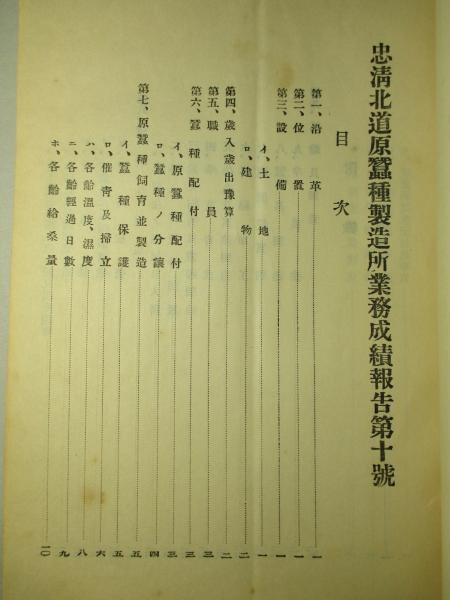 忠淸北道原蠶種製造所業務成績報告第十號
目次
第一、沿革 一
第二、位置 一
第三、設備 一
イ、土地 一
ロ、建物 二
第四、歲入歲出豫算 二
第五、職員 三
第六、蠶種配付 三
イ、原蠶種配付 三
ロ、蠶種ノ分讓 四
第七、原蠶種飼育並製造 五
イ、蠶種保護 五
ロ、催靑及掃立 六
ハ、各齡溫度、濕度 八
ニ、各齡經過日數 九
ホ、各齡給桑量 一〇